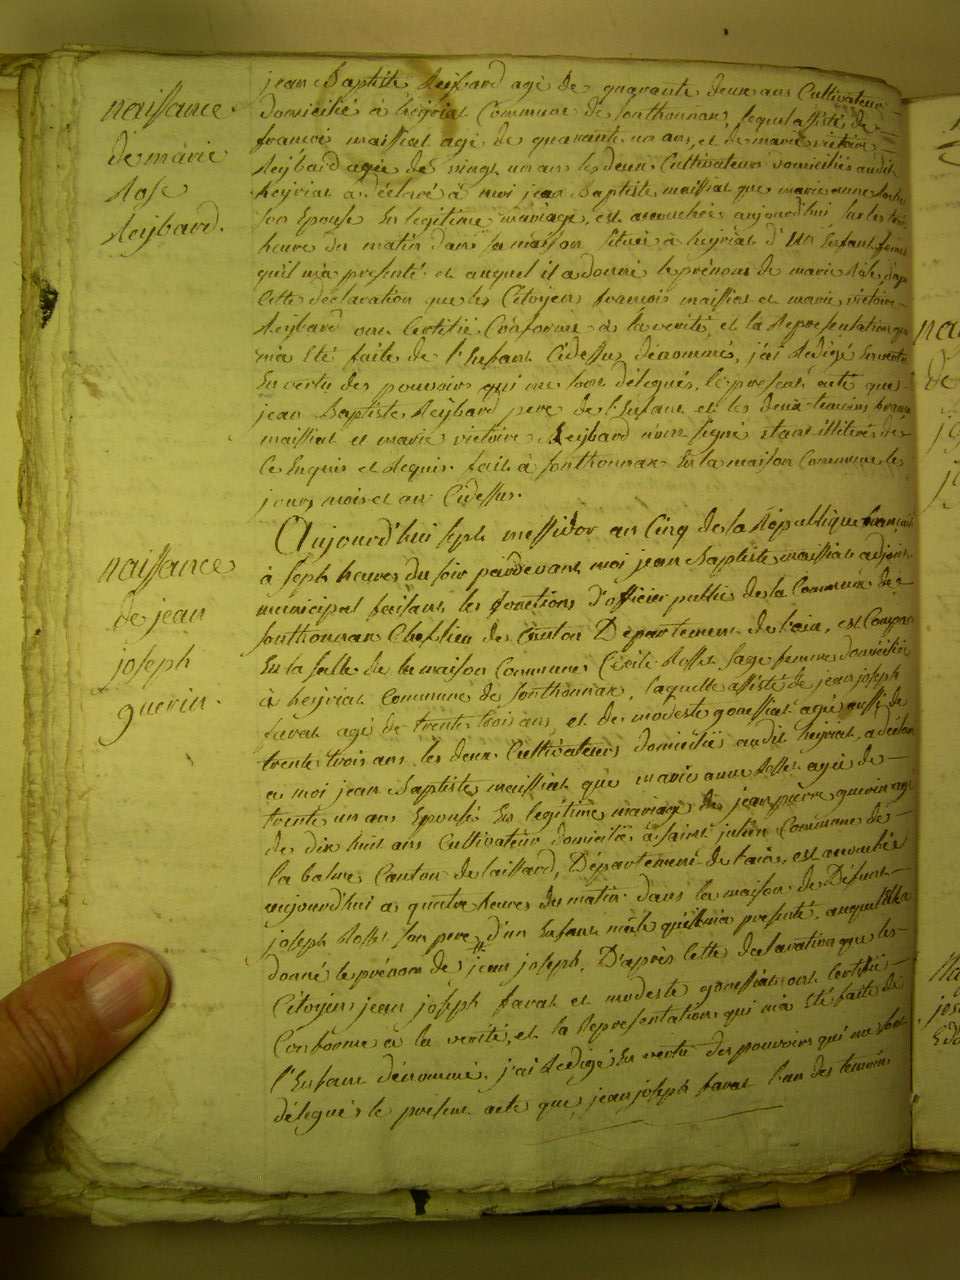 naissance
de marie
Rose
Reybard.
jean Baptiste Reybard agé de quarante deux ans Cultivateur
domicilié à heyriat Commune de Sonthonnax, lequel assisté de
francoi maissiat agé de quarante un ans, et de marie victoire
Reybard agée de vingt un ans les deux Cultivateurs domiciliés audit
heyriat à déclaré à moi jean Baptiste maissiat que marie anne
son Epouse En legitime mariage, est accouchée aujourd'hui sur les
heure du matin dans sa maison située à heyriat d'un Enfant femel
qu'il m'a presenté et auquel il a donné le prénom de marie Rose, d'apr
Cette déclaration que les Citoyens francois maissiat et marie victoire
Reybard ont Certifié Conforme à la verité, et la Representation qui
m'a Eté faite de l'Enfant Cidessus dénommé, j'ai Redigé
En vertu des pouvoirs qui me sont délegués, le present acte que
jean Baptiste Reybard pere de l'Enfant et les deux temoins francois
maissiat et marie victoire Reybard n'ont signé étant illiterés de
Ce Enquis et Requis. fait à Sonthonnax En la maison Commune les
jours mois et an Cidessus.
naissance
de jean
joseph
guerin.
Aujourd'hui sept messidor an Cinq de la République francaise
à sept heures du soir pardevant moi jean Baptiste maissiat adjoint
municipal faisant les fonctions d'officier public de la Commune de
Sonthonnax Cheflieu de Canton Département de l'ain, est Comparu
En la salle de la maison Commune Cécile Rosset sage femme domiciliée
à heyriat Commune de Sonthonnax, laquelle assisté de jean joseph
favat agé de trente trois ans et de modeste gonessiat agée aussi de
trente trois ans, les deux Cultivateurs domiciliés audit heyriat, a déclaré
a moi jean Baptiste maissiat que marie anne Rosset agée de
trente un ans Epouse En legitime mariage de jean pierre guerin agé
de dix huit ans Cultivateur domicilié à saint julien Commune de
la balme Canton de laissard, Département de l'ain, est accouchée
aujourd'hui a quatre heures du matin dans la maison de Défunt
joseph Rosset son pere, d'un Enfant mâle qu'elle m'a presenté, auquel Elle a
donné le prénom de jean joseph. D'après Cette declaration que les
Citoyens jean joseph favat et modeste gonessiat ont Certifié
Conforme à la verité, et la Representation qui m'a Eté faite de
l'Enfant dénommé. j'ai Redigé En vertu des pouvoirs qui me sont
délegués le présent acte que jean joseph favat l'un des temoins